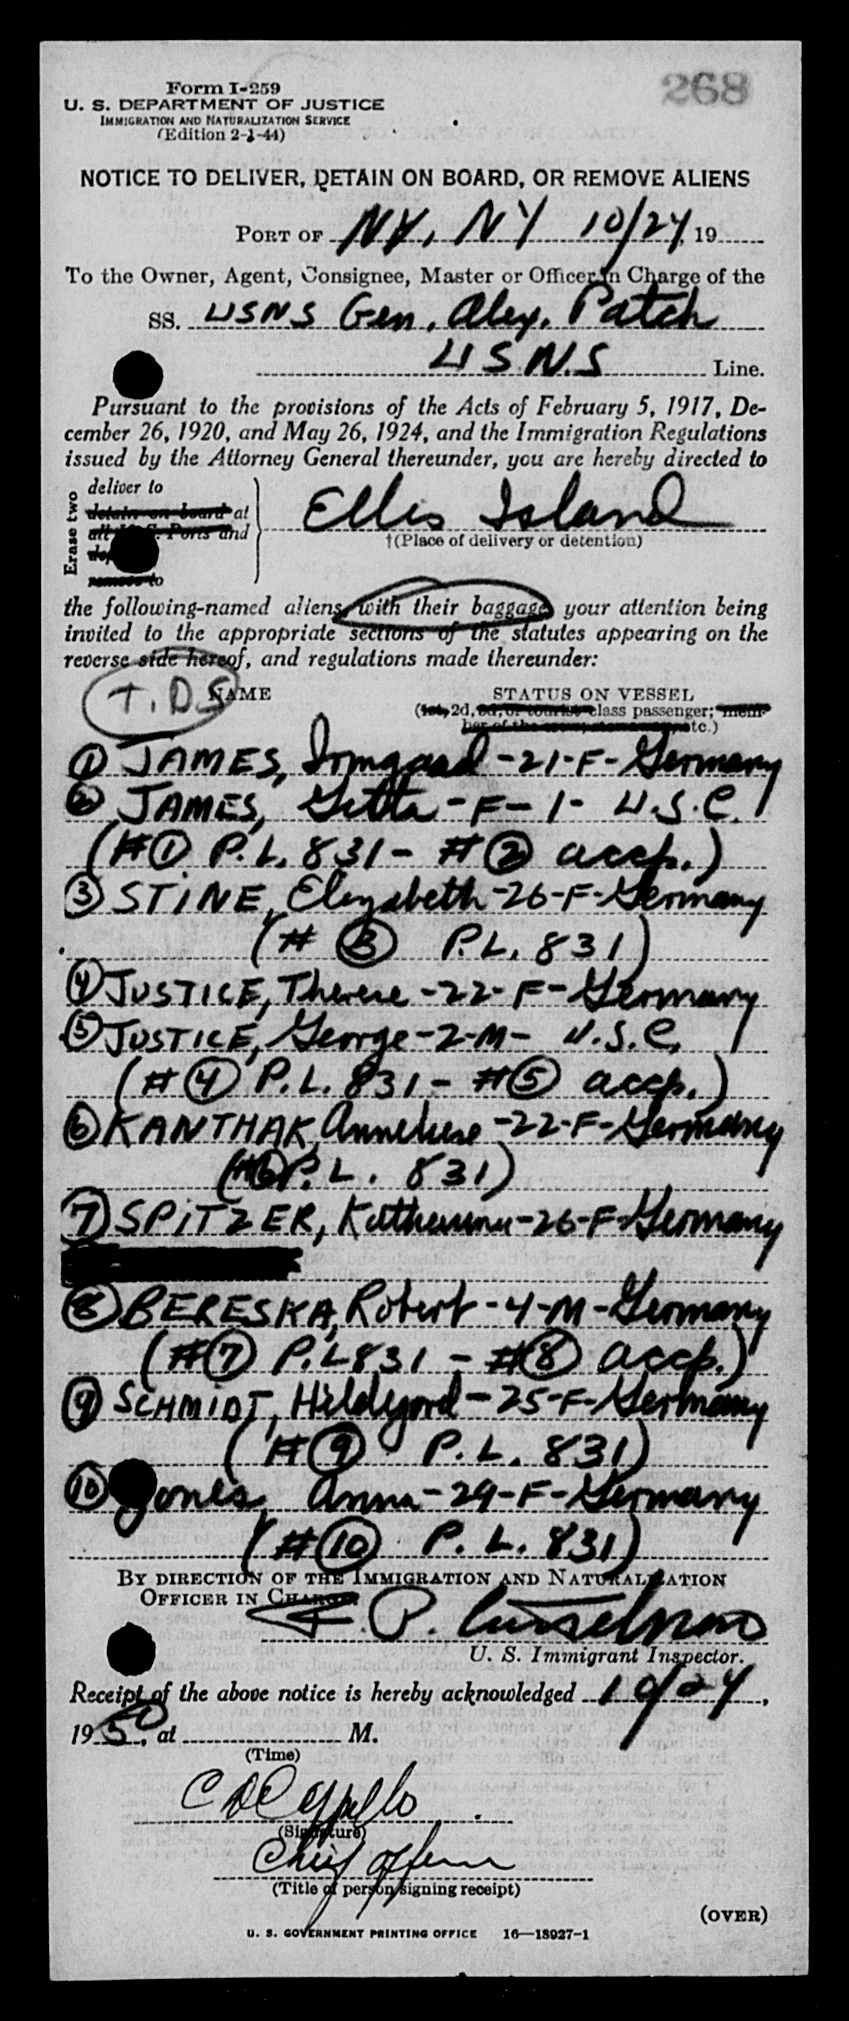 268
Form I-259
U. S. DEPARTMENT OF JUSTICE
IMMIGRATION AND NATURALIZATION SERVICE
(Edition 2-1-44)
NOTICE TO DELIVER, DETAIN ON BOARD, OR REMOVE ALIENS
PORT OF NY, NY 10/24, 19
To the Owner, Agent, Consignee, Master or Officer in Charge of the
SS. USNS Gen. Alex. Patch
U S.N.S Line.
Pursuant to the provisions of the Acts of February 5, 1917, De-
cember 26, 1920, and May 26, 1924, and the Immigration Regulations
issued by the Attorney General thereunder, you are hereby directed to
Erase two
deliver to
detain on board at
all U. S. Ports and
remove to
Ellis Island
†(Place of delivery or detention)
the following-named aliens, with their baggage, your attention being
invited to the appropriate sections of the statutes appearing on the
reverse side hereof, and regulations made thereunder:
T.D.S NAME STATUS ON VESSEL
(1st, 2d, 3d, or tourist class passenger; mem-
ber of the crew, stowaway, etc.)
① JAMES, Irmgard -21-F- Germany
② JAMES, Gitta -F-1- U.S.C.
(#① P.L. 831- #② accp.)
③ STINE, Elizabeth -26-F- Germany
(# ③ P.L. 831)
④ JUSTICE, Therese -22-F- Germany
⑤ JUSTICE, George -2-M- U.S.C.
(#④ P.L. 831- #⑤ accp.)
⑥ KANTHAK, Anneliese -22-F- Germany
(#⑥ P.L. 831)
⑦ SPITZER, Katherina -26-F- Germany
⑧ BERESKA, Robert -4-M- Germany
(#⑦ P.L 831 - #⑧ accp.)
⑨ SCHMIDT, Hildegard -25-F- Germany
(#⑨ P.L. 831)
⑩ Jones, Anna -29-F- Germany
(#⑩ P.L. 831)
BY DIRECTION OF THE IMMIGRATION AND NATURALIZATION
OFFICER IN CHARGE
P.
U. S. Immigrant Inspector.
Receipt of the above notice is hereby acknowledged 10/24,
1950, at M.
(Time)
(Signature)
Chief officer
(Title of person signing receipt)
(OVER)
U. S. GOVERNMENT PRINTING OFFICE 16—18927-1